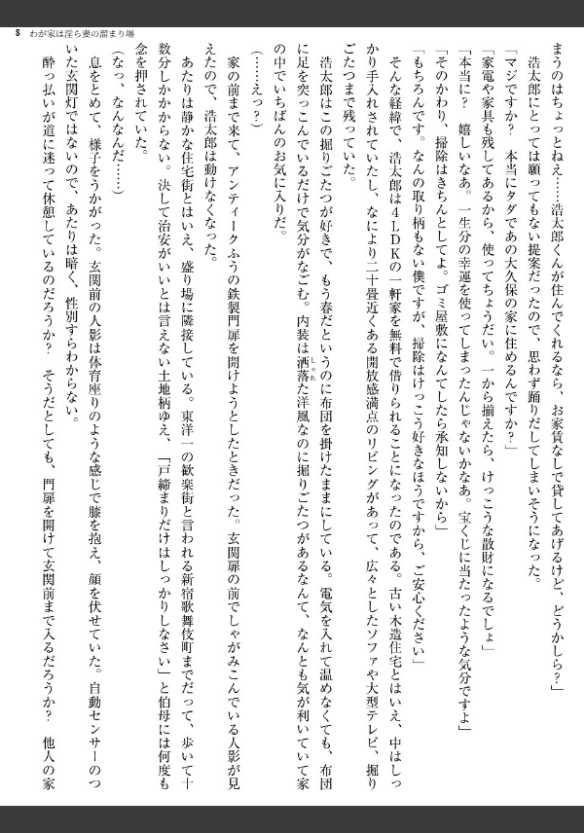 8 わが家は淫ら妻の溜まり場
まうのはちょっとねえ……浩太郎くんが住んでくれるなら、お家賃なしで貸してあげるけど、どうかしら？」
浩太郎にとっては願ってもない提案だったので、思わず踊りだしてしまいそうになった。
「マジですか？　本当にタダであの大久保の家に住めるんですか？」
「家電や家具も残してあるから、使ってちょうだい。一から揃えたら、けっこうな散財になるでしょ」
「本当に？　嬉しいなあ。一生分の幸運を使ってしまったんじゃないかなあ。宝くじに当たったような気分ですよ」
「そのかわり、掃除はきちんとしてよ。ゴミ屋敷になんてしたら承知しないから」
「もちろんです。なんの取り柄もない僕ですが、掃除はけっこう好きなほうですから、ご安心ください」
そんな経緯で、浩太郎は４ＬＤＫの一軒家を無料で借りられることになったのである。古い木造住宅とはいえ、中はしっ
かり手入れされていたし、なにより二十畳近くある開放感満点のリビングがあって、広々としたソファや大型テレビ、掘り
ごたつまで残っていた。
浩太郎はこの掘りごたつが好きで、もう春だというのに布団を掛けたままにしている。電気を入れて温めなくても、布団
に足を突っこんでいるだけで気分がなごむ。内装は洒落た洋風なのに掘りごたつがあるなんて、なんとも気が利いていて家
の中でいちばんのお気に入りだ。
（……えっ？）
家の前まで来て、アンティークふうの鉄製門扉を開けようとしたときだった。玄関扉の前でしゃがみこんでいる人影が見
えたので、浩太郎は動けなくなった。
あたりは静かな住宅街とはいえ、盛り場に隣接している。東洋一の歓楽街と言われる新宿歌舞伎町までだって、歩いて十
数分しかかからない。決して治安がいいとは言えない土地柄ゆえ、「戸締まりだけはしっかりしなさい」と伯母には何度も
念を押されていた。
（なっ、なんなんだ……）
息をとめて、様子をうかがった。玄関前の人影は体育座りのような感じで膝を抱え、顔を伏せていた。自動センサーのつ
いた玄関灯ではないので、あたりは暗く、性別すらわからない。
酔っ払いが道に迷って休憩しているのだろうか？　そうだとしても、門扉を開けて玄関前まで入るだろうか？　他人の家